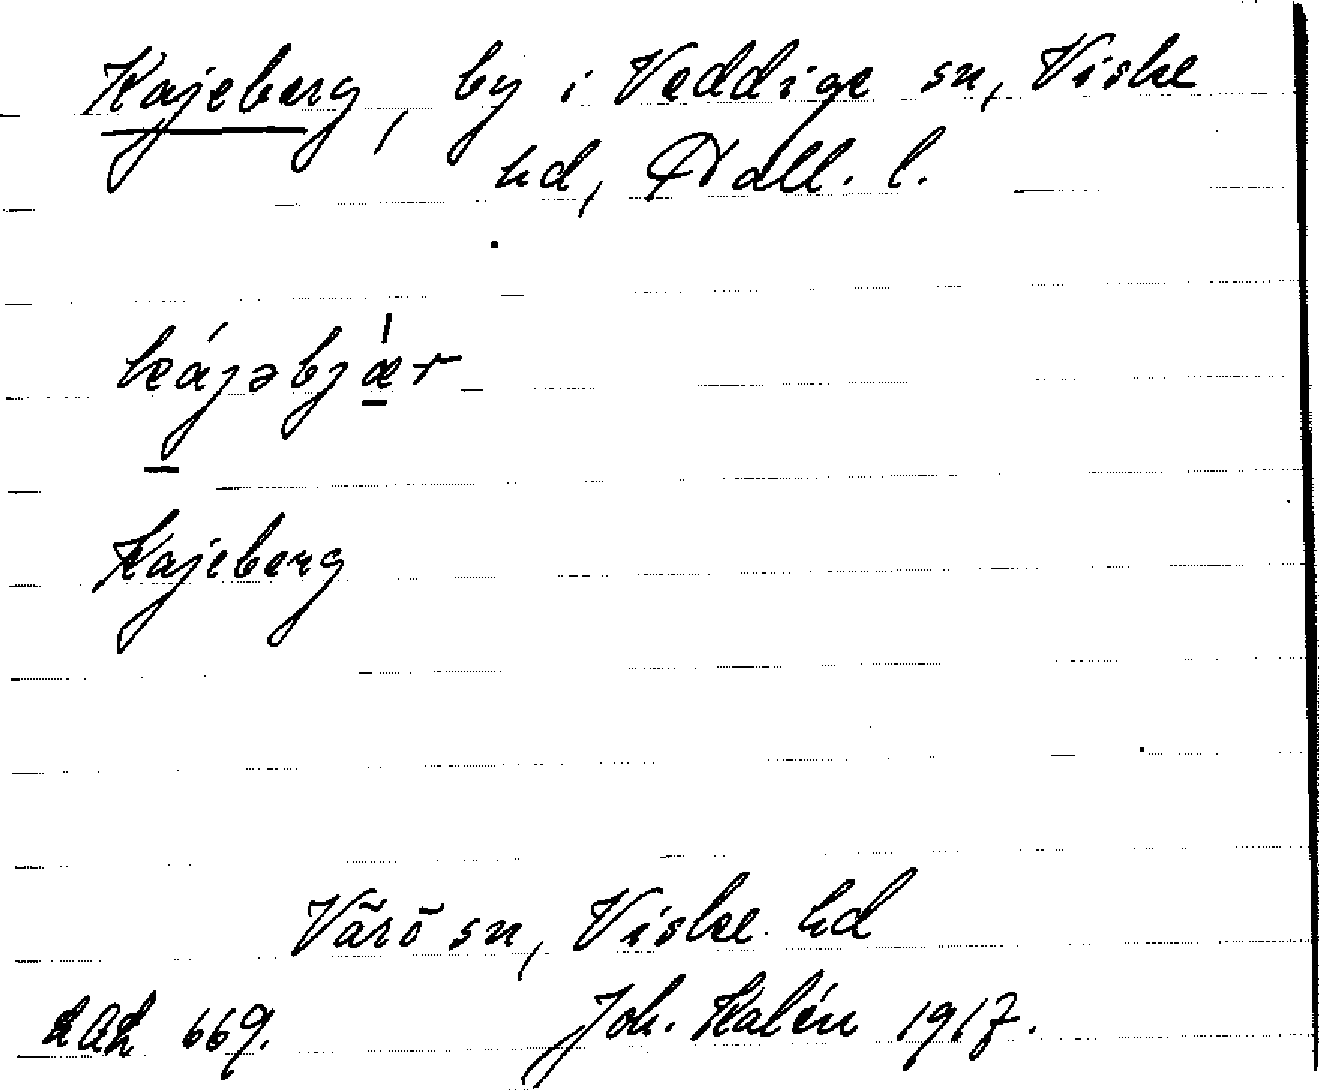 Kajeberg, by i Veddige sn, Viske
hd, Hall. l.
kájəbjæ̀r
Kajeberg
Värö sn, Viske hd
LAL 669. Joh. Kalén 1917.